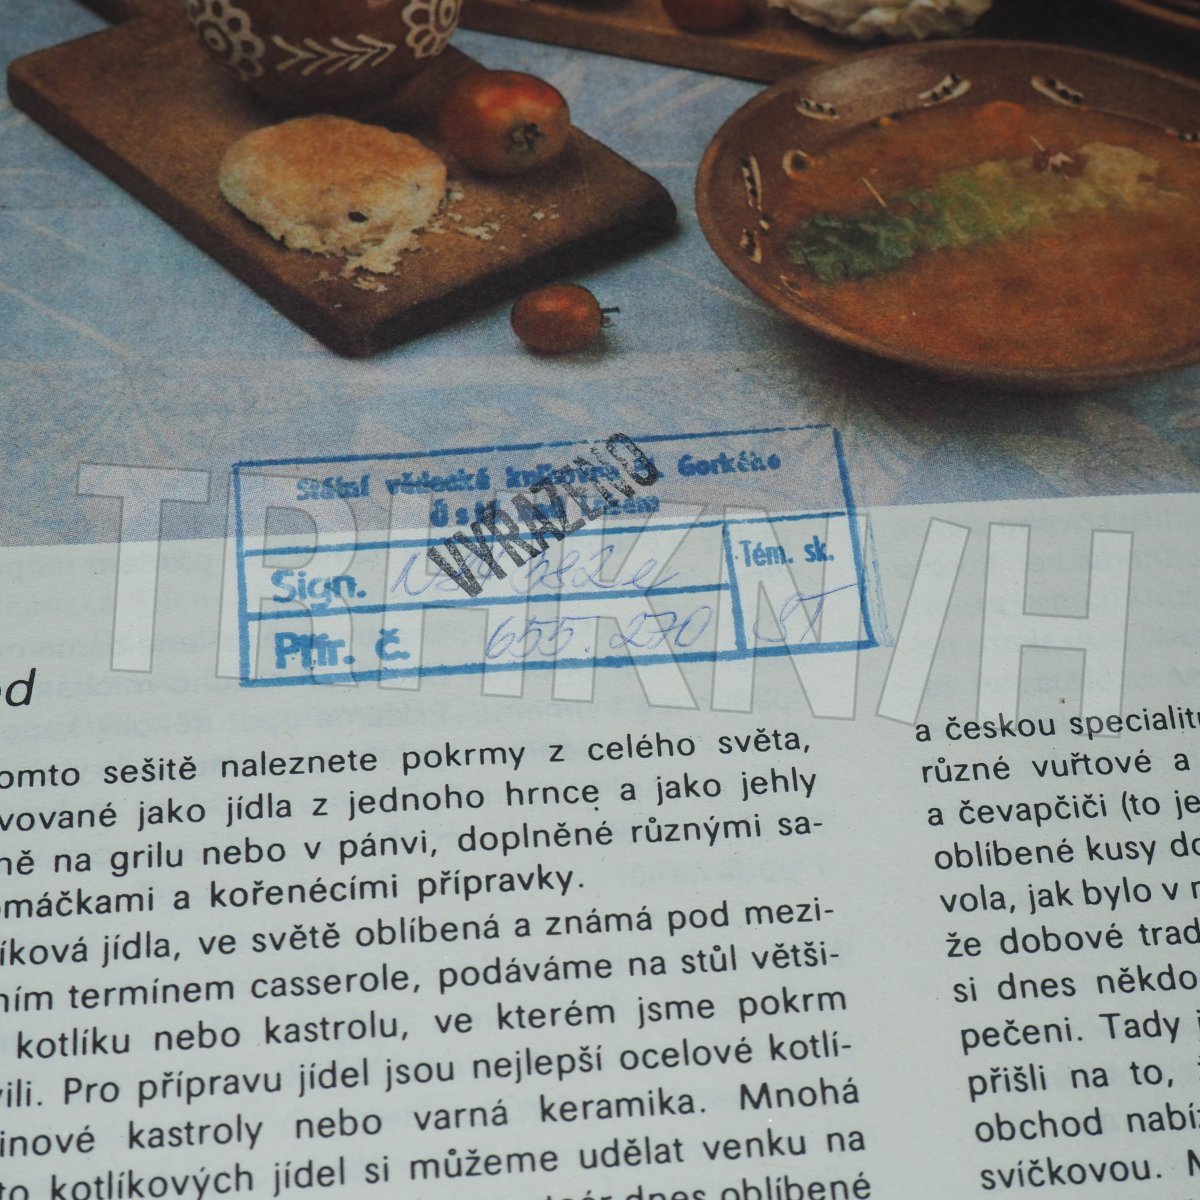 Státní vědecká knihovna M. Gorkého
Ústí nad Labem
VYŘAZENO
Sign.
Tém. sk.
Přír. č. 655.270
ST
TRHKNIH
od
omto sešitě naleznete pokrmy z celého světa,
vované jako jídla z jednoho hrnce a jako jehly
ně na grilu nebo v pánvi, doplněné různými sa-
omáčkami a kořenécími přípravky.
íková jídla, ve světě oblíbená a známá pod mezi-
ním termínem casserole, podáváme na stůl větši-
kotlíku nebo kastrolu, ve kterém jsme pokrm
vili. Pro přípravu jídel jsou nejlepší ocelové kotlí-
inové kastroly nebo varná keramika. Mnohá
to kotlíkových jídel si můžeme udělat venku na
dnes oblíbené
a českou specialitu
různé vuřtové a
a čevapčiči (to je
oblíbené kusy do
vola, jak bylo v
že dobové trad
si dnes někdo
pečeni. Tady j
přišli na to,
obchod nabíz
svíčkovou. M